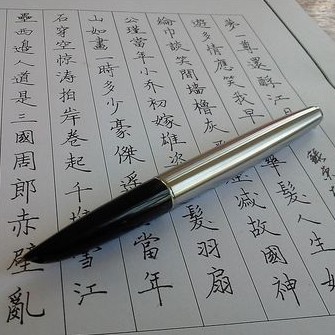 壘西邊人道是三國周郎赤壁亂
石穿空惊涛拍岸卷起千堆雪江
山如畫一時多少豪傑遥當年
公瑾當年小乔初嫁雄姿髮羽扇
綸巾談笑間墻櫓灰滅故國神
遊多情應笑我早華髮人生如
夢一尊還酹江